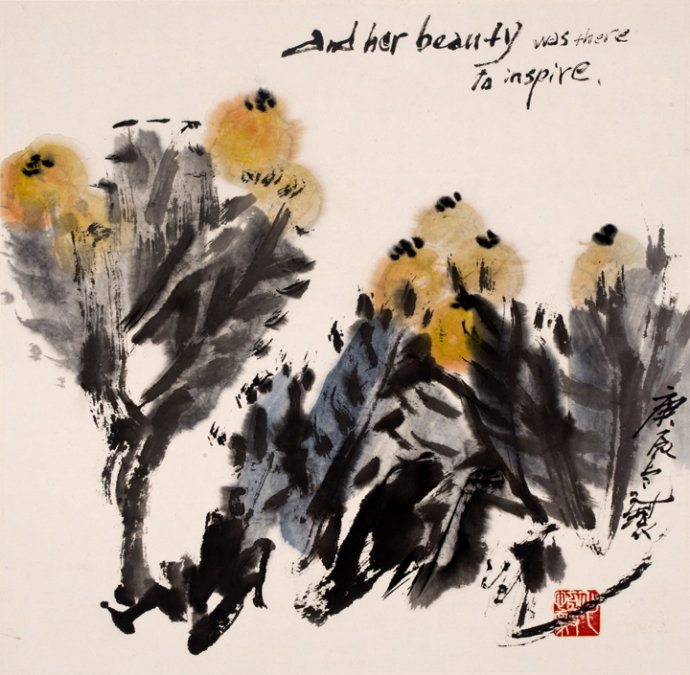 And her beauty was there
to inspire.
庚辰